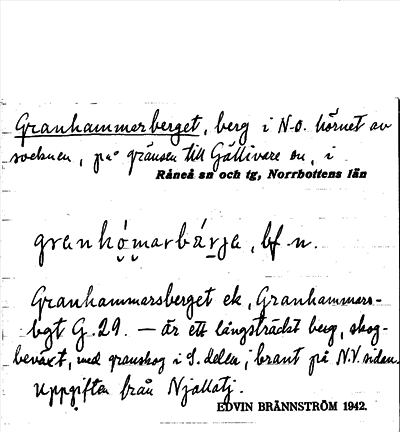 Granhammerberget, berg i N.O. hörnet av
socknen, på gränsen till Gällivare sn, i
Råneå sn och tg, Norrbottens län
granhó̯ma̯rbá̱rja, bf n.
Granhammersberget ek, Granhammers-
bgt G.29. — är ett långsträckt berg, skog-
beväxt, med granskog i S. delen, brant på N.V. sidan.
Uppgiften från Njallatj.
EDVIN BRÄNNSTRÖM 1942.